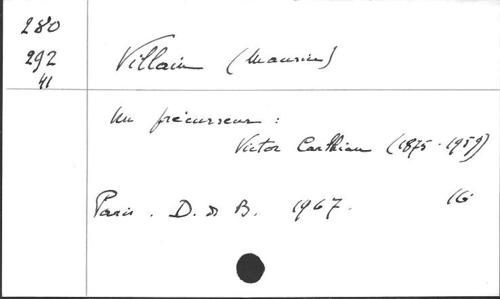 280
292
41
Villain (Maurice)
Un précurseur :
Victor Carlhian (1875-1959)
Paris. D. de B. 1967. 16